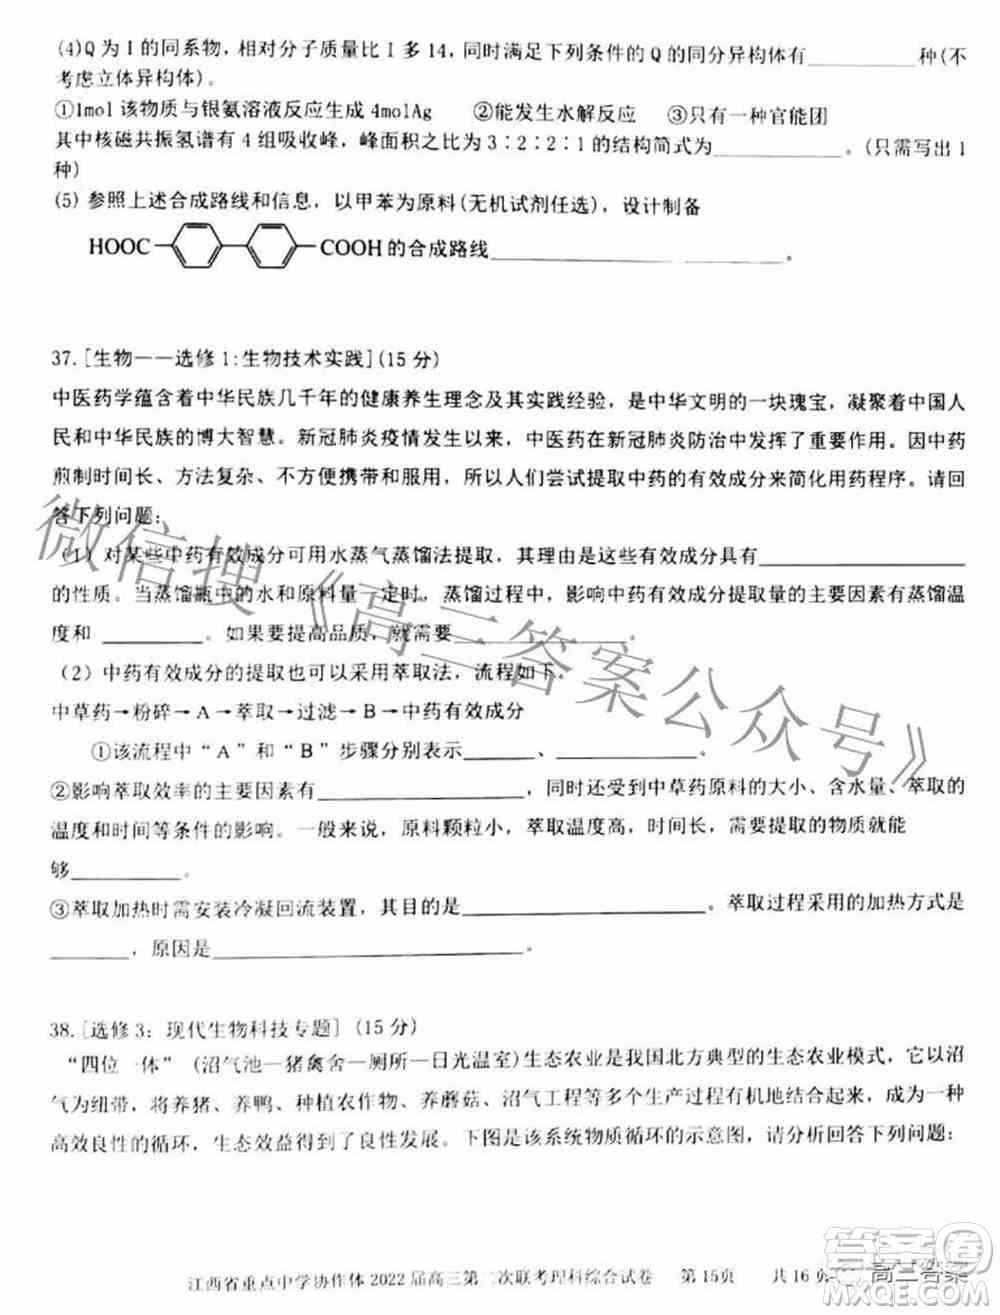 (4)Q 为 I 的同系物，相对分子质量比 I 多 14，同时满足下列条件的 Q 的同分异构体有__________种(不
考虑立体异构体)。
①1mol 该物质与银氨溶液反应生成 4molAg ②能发生水解反应 ③只有一种官能团
其中核磁共振氢谱有 4 组吸收峰，峰面积之比为 3∶2∶2∶1 的结构简式为____________。(只需写出 1
种)
(5) 参照上述合成路线和信息，以甲苯为原料(无机试剂任选)，设计制备
HOOC COOH 的合成路线__________________________。
37.[生物——选修 1:生物技术实践](15 分)
中医药学蕴含着中华民族几千年的健康养生理念及其实践经验，是中华文明的一块瑰宝，凝聚着中国人
民和中华民族的博大智慧。新冠肺炎疫情发生以来，中医药在新冠肺炎防治中发挥了重要作用。因中药
煎制时间长、方法复杂、不方便携带和服用，所以人们尝试提取中药的有效成分来简化用药程序。请回
答下列问题:
（1）对某些中药有效成分可用水蒸气蒸馏法提取，其理由是这些有效成分具有____________________
的性质。当蒸馏瓶中的水和原料量一定时，蒸馏过程中，影响中药有效成分提取量的主要因素有蒸馏温
度和 __________。如果要提高品质，就需要________________。
（2）中药有效成分的提取也可以采用萃取法，流程如下:
中草药→粉碎→A→萃取→过滤→B→中药有效成分
①该流程中“A”和“B”步骤分别表示____________、____________。
②影响萃取效率的主要因素有____________________，同时还受到中草药原料的大小、含水量、萃取的
温度和时间等条件的影响。一般来说，原料颗粒小，萃取温度高，时间长，需要提取的物质就能
够__________。
③萃取加热时需安装冷凝回流装置，其目的是__________________________。萃取过程采用的加热方式是
________，原因是______________________________。
38.[选修 3：现代生物科技专题] (15 分)
“四位一体” (沼气池—猪禽舍—厕所—日光温室)生态农业是我国北方典型的生态农业模式，它以沼
气为纽带，将养猪、养鸭、种植农作物、培育蘑菇、沼气生产等过程有机地结合在一起，成为一种
高效良性的循环，生态效益得到了良性发展。下图是该系统物质循环的示意图，请分析回答下列问题：
微信搜《高三答案公众号》
江西省重点中学协作体 2022 届高三第二次联考理科综合试卷 第 15页 共 16 页
高三答案
答案圈
MXQE.COM